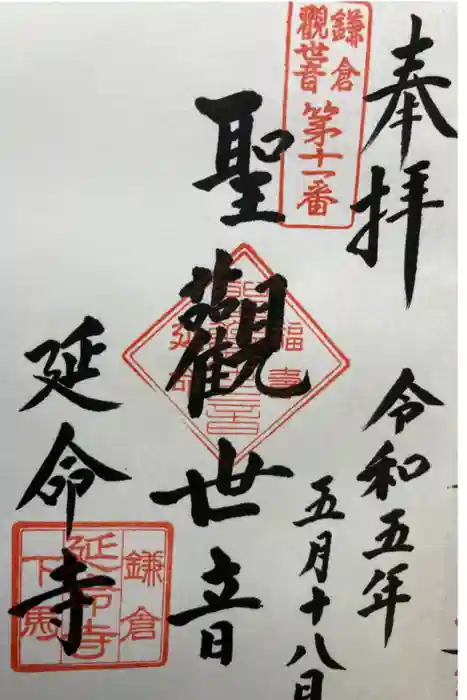 奉拝
令和五年
五月十八日
鎌倉
觀世音
第十一番
聖觀世音
福壽
延命
延命寺
鎌倉
延命寺
下馬